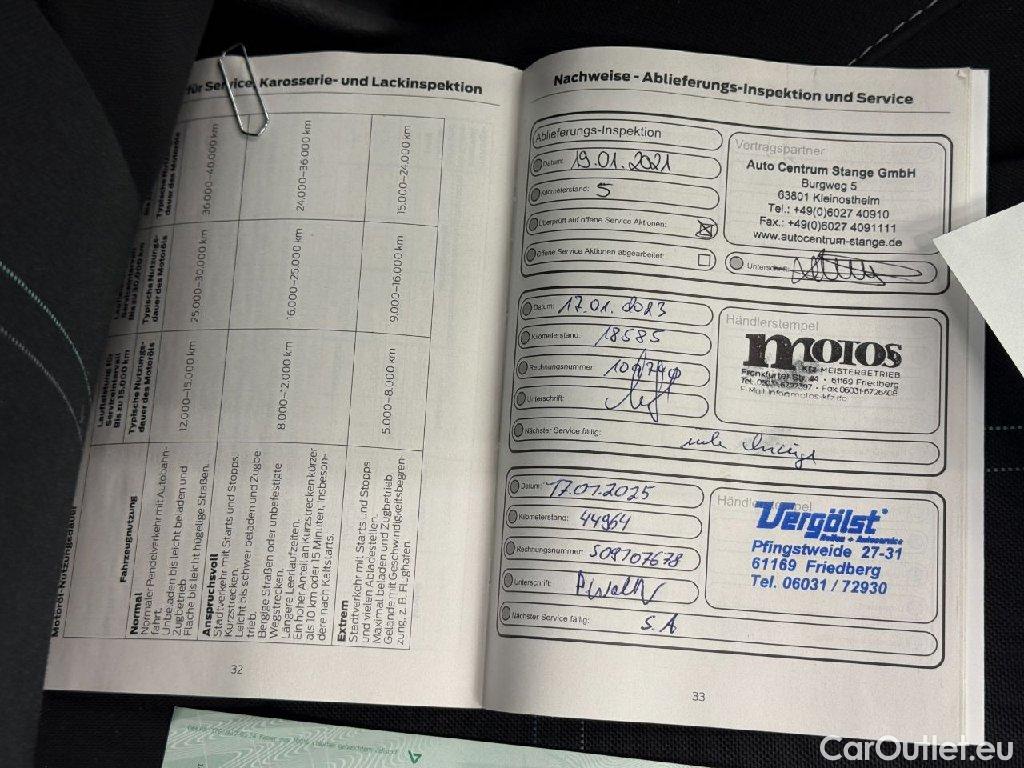 für Service, Karosserie- und Lackinspektion
Motoröl-Nutzungsdauer
Fahrzeugnutzung
Laufleistung für
Serviceintervall
Bis zu 15.000 km
Typische Nutzungs-
dauer des Motoröls
Bis zu 30.000 km
Typische Nutzungs-
dauer des Motoröls
Typische Nutzungs-
dauer des Motoröls
Normal
Normaler Pendelverkehr mit Autobahn-
fahrt.
Unbeladen bis leicht beladen und
Zugbetrieb
Flache bis leicht hügelige Straßen.
12.000–15.000 km
25.000–30.000 km
36.000–40.000 km
Anspruchsvoll
Stadtverkehr mit Starts und Stopps.
Kurzstrecken.
Leicht bis schwer beladen und Zugbe-
trieb.
Bergige Straßen oder unbefestigte
Wegstrecken.
Längere Leerlaufzeiten.
Ein hoher Anteil an Kurzstrecken kürzer
als 10 km oder 15 Minuten, insbeson-
dere nach Kaltstarts.
8.000–12.000 km
16.000–25.000 km
24.000–36.000 km
Extrem
Stadtverkehr mit Starts und Stopps
und vielen Abladestellen.
Maximal beladen und Zugbetrieb
Gelände mit Geschwindigkeitsbegren-
zung, z. B. Flughafen
5.000–8.000 km
9.000–16.000 km
15.000–24.000 km
32
Nachweise - Ablieferungs-Inspektion und Service
Ablieferungs-Inspektion
Datum: 19.01.2021
Kilometerstand: 5
Überprüft auf offene Service Aktionen:
Offene Service Aktionen abgearbeitet:
Vertragspartner
Auto Centrum Stange GmbH
Burgweg 5
63801 Kleinostheim
Tel.: +49(0)6027 40910
Fax.: +49(0)6027 4091111
www.autocentrum-stange.de
Unterschrift:
Datum: 17.01.2023
Kilometerstand: 18585
Rechnungsnummer:
Unterschrift:
Nächster Service fällig:
Händlerstempel
MOTOS
KFZ-MEISTERBETRIEB
Frankfurter Str. 44 • 61169 Friedberg
Datum: 17.01.2025
Kilometerstand: 44964
Rechnungsnummer: 509707678
Unterschrift:
Nächster Service fällig: S. A
Händlerstempel
Vergölst
Reifen + Autoservice
Pfingstweide 27-31
61169 Friedberg
Tel. 06031 / 72930
33
CarOutlet.eu